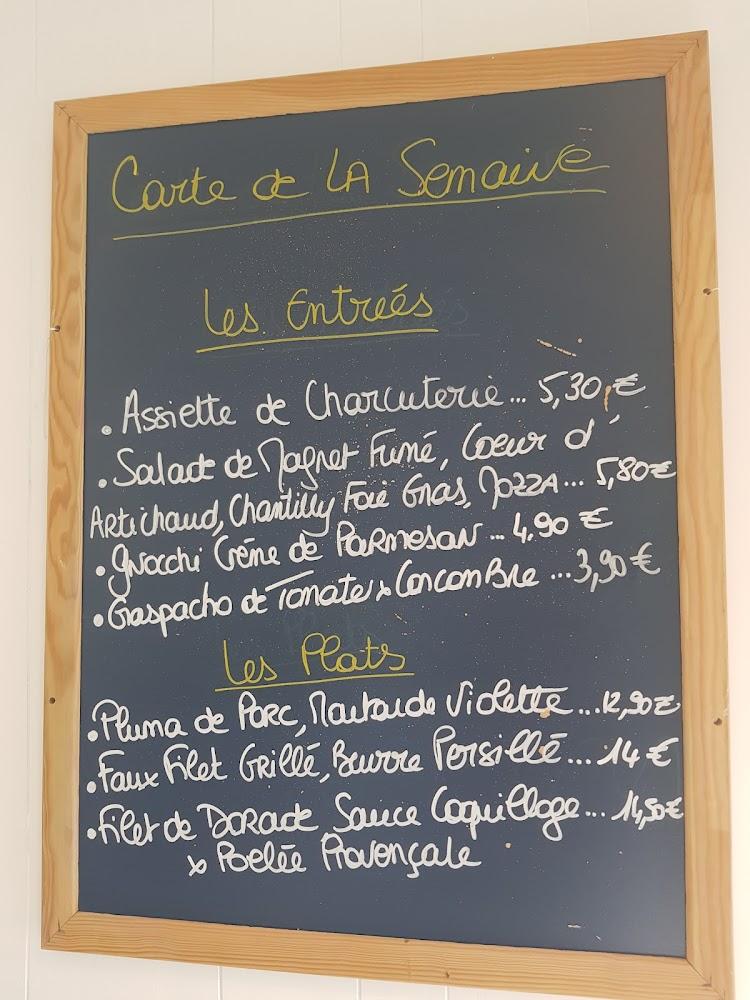 Carte de LA Semaine
Les Entreés
• Assiette de Charcuterie... 5,30 €
• Salade de Magret Fumé, Coeur d'
Artichaud, Chantilly Foie Gras, Mozza... 5,80€
• Gnocchi Crème de Parmesan... 4,90 €
• Gaspacho de Tomate x Concombre ...3,90 €
Les Plats
• Pluma de Porc, Moutarde Violette ...12,90€
• Faux Filet Grillé, Beurre Persillé... 14 €
• Filet de Dorade, Sauce Coquillage... 14,50€
x Poelée Provençale